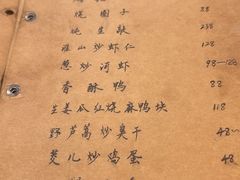 烧圈子 88
炖生敲 258
雁山炒虾仁 128
葱炒河虾 98-128
香酥鸭 88
生姜瓜红烧麻鸭块 118
野芦蒿炒臭干 48
茭儿炒鸡蛋 48